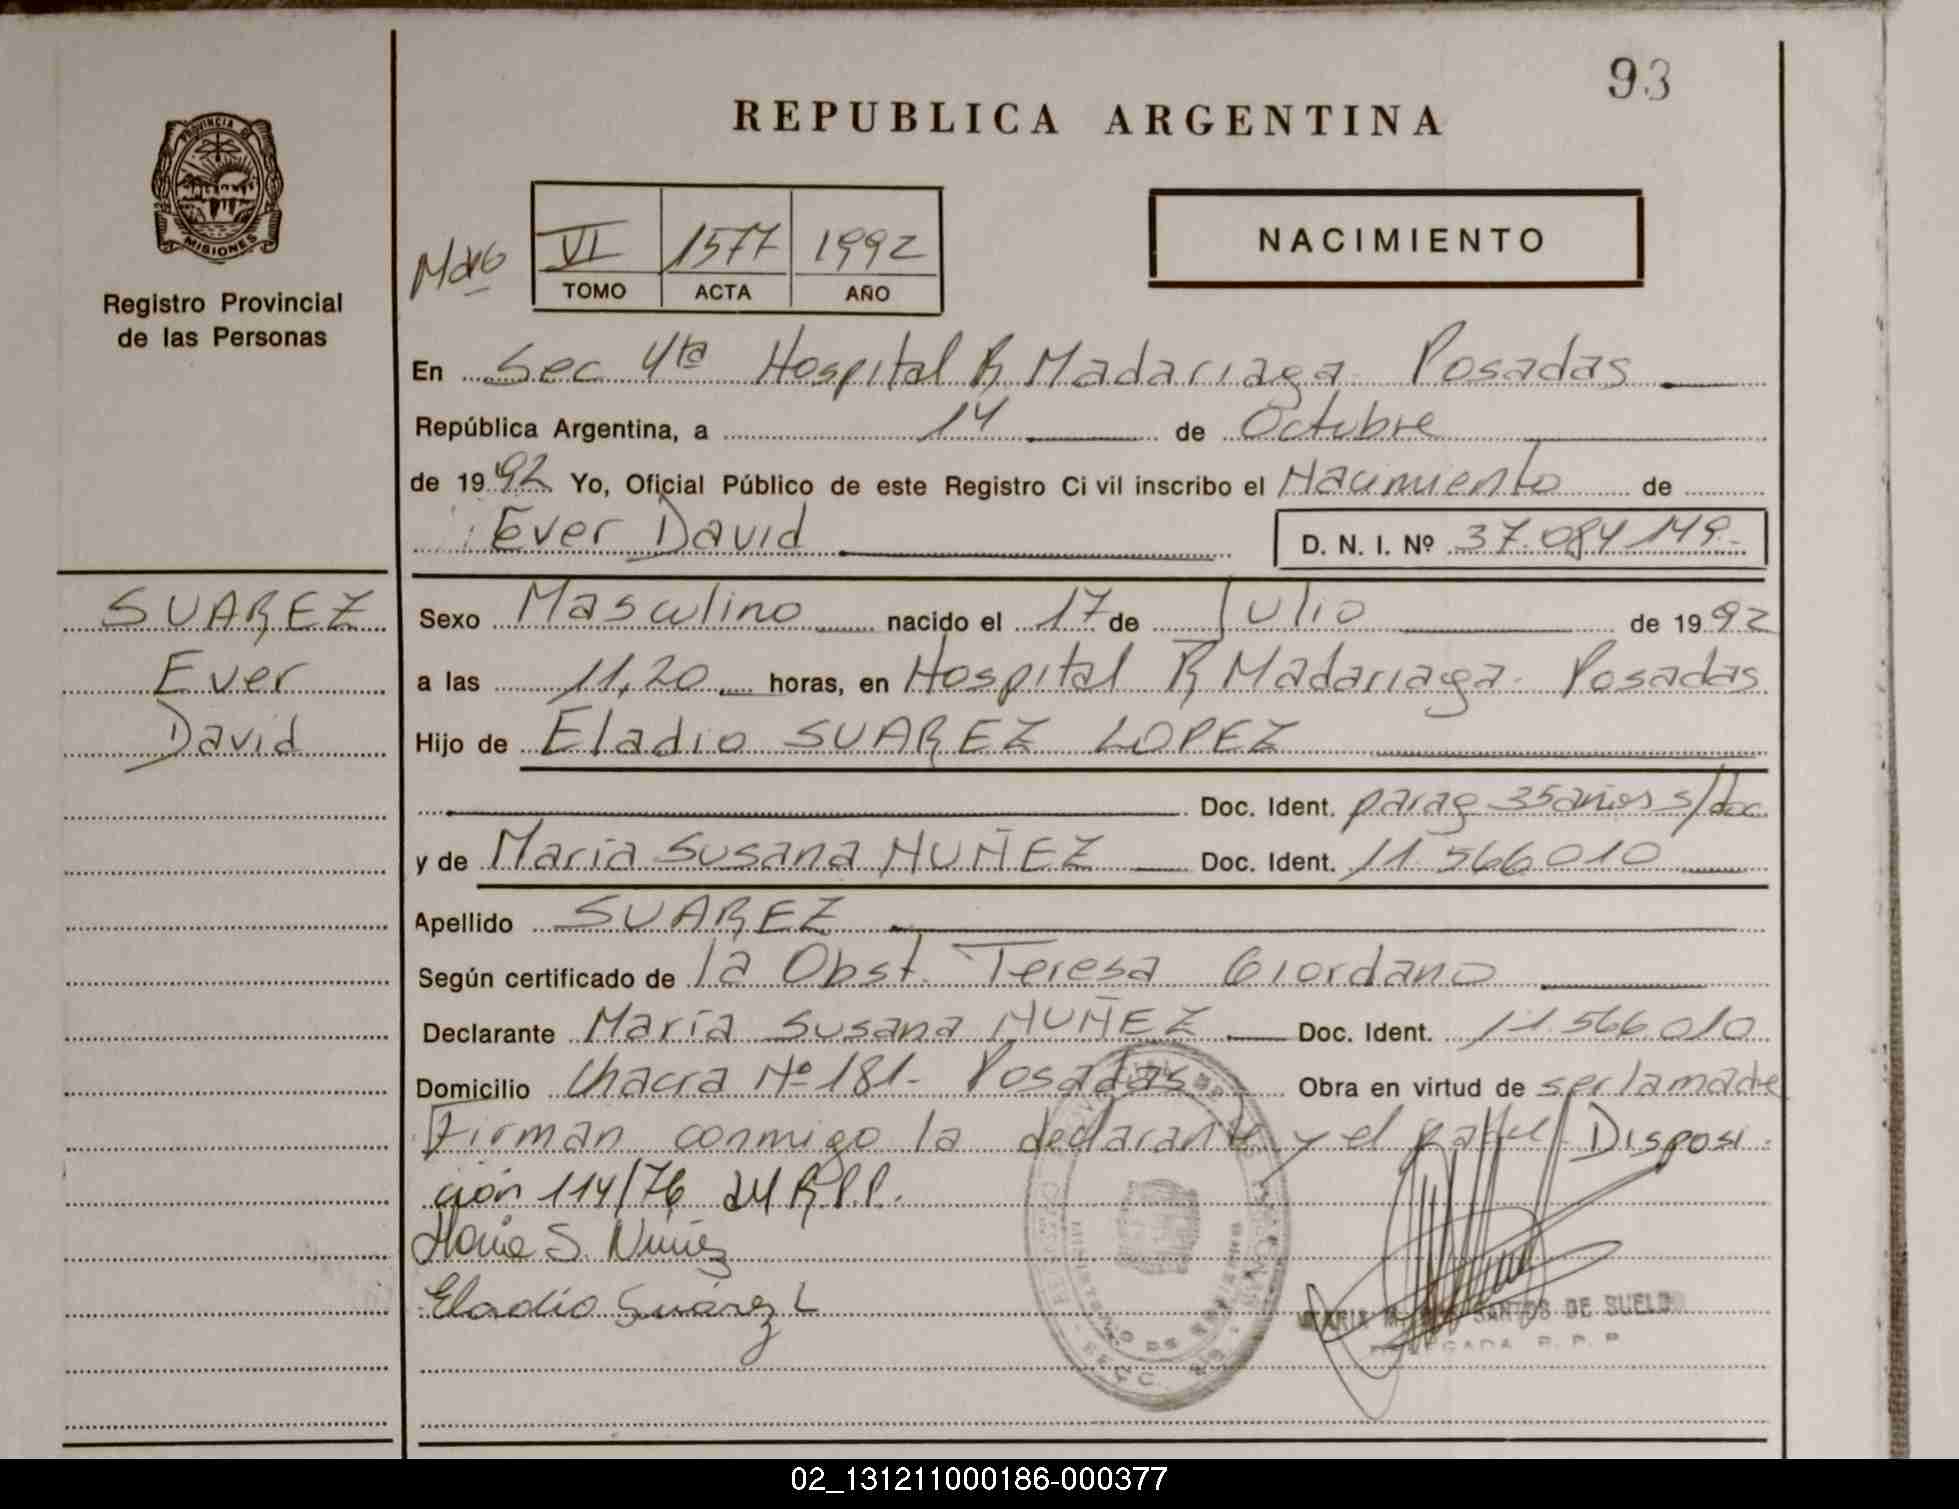 93
REPUBLICA ARGENTINA
PROVINCIA DE
MISIONES
Registro Provincial
de las Personas
VI 1577 1992
TOMO ACTA AÑO
NACIMIENTO
En Sec 4ta Hospital R Madariaga Posadas
República Argentina, a 14 de Octubre
de 1992 Yo, Oficial Público de este Registro Civil inscribo el Nacimiento de
Ever David D. N. I. Nº 37.084.149.-
SUAREZ
Ever
David
Sexo Masculino nacido el 17 de Julio de 1992
a las 11,20 horas, en Hospital R Madariaga. Posadas
Hijo de Eladio SUAREZ LOPEZ
Doc. Ident. parag 35 años s/doc
y de María Susana NUÑEZ Doc. Ident. 11.566.010
Apellido SUAREZ
Según certificado de la Obst. Teresa Giordano
Declarante María Susana NUÑEZ Doc. Ident. 11.566.010
Domicilio Chacra Nº 181- Posadas Obra en virtud de ser la madre
Firman conmigo la declarante y el padre/ Disposi
ción 114/76 R.P.P.
Maria S. Nuñez
Eladio Suárez L
SANTOS DE SUELDO
DELEGADA R. P. P.
02_131211000186-000377